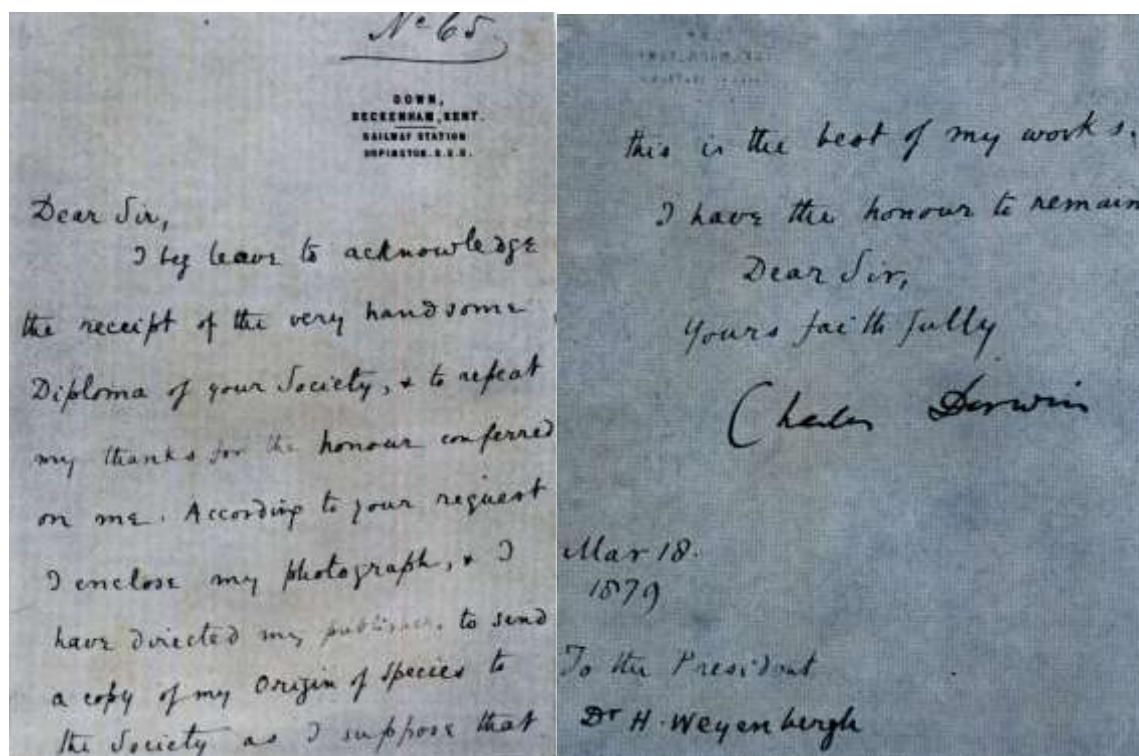 No 65.
DOWN,
BECKENHAM, KENT.
RAILWAY STATION
ORPINGTON. S.E.R.
Dear Sir,
I beg leave to acknowledge
the receipt of the very handsome
Diploma of your Society, & to repeat
my thanks for the honour conferred
on me. According to your request
I enclose my photograph, & I
have directed my publisher, to send
a copy of my Origin of Species to
the Society as I suppose that
this is the best of my works.
I have the honour to remain
Dear Sir,
Yours faithfully
Charles Darwin
Mar 18.
1879
To the President
Dr H. Weyenbergh